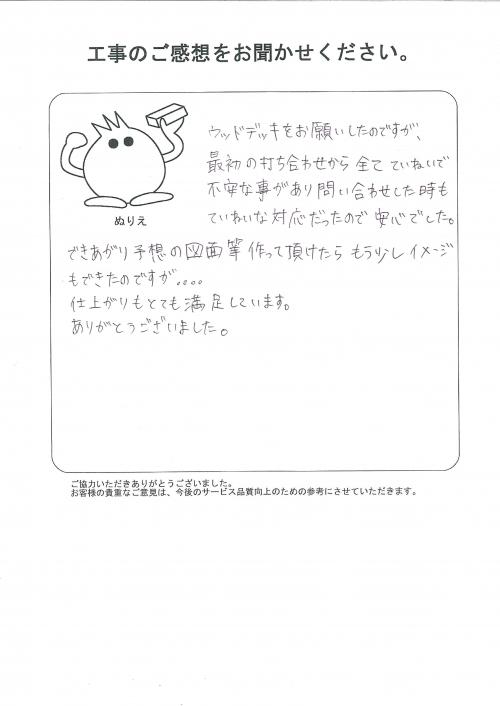 工事のご感想をお聞かせください。
ウッドデッキをお願いしたのですが、
最初の打ち合わせから全てていねいで
不安な事があり問い合わせした時も
ていねいな対応だったので安心でした。
ぬりえ
できあがり予想の図面等作って頂けたらもう少しイメージ
もできたのですが....
仕上がりもとても満足しています。
ありがとうございました。
ご協力いただきありがとうございました。
お客様の貴重なご意見は、今後のサービス品質向上のための参考にさせていただきます。